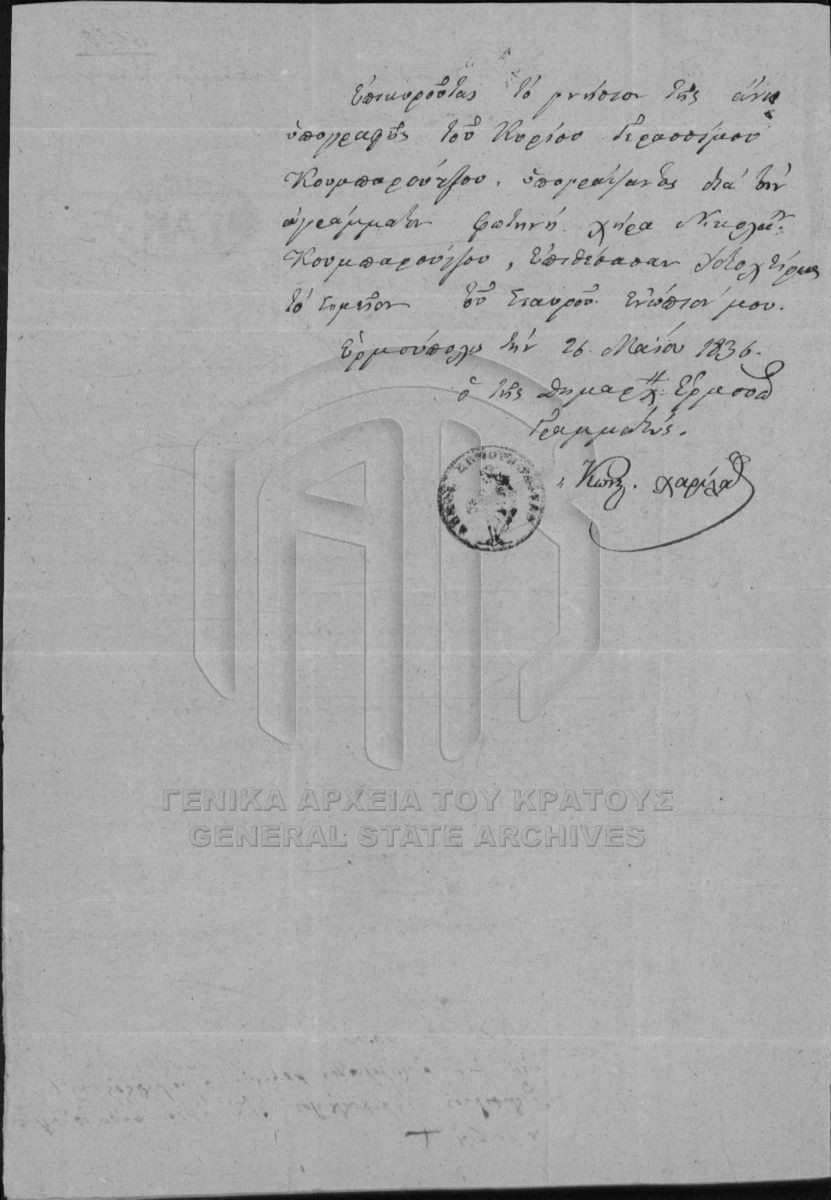 Ἐπικυροῦται τὸ γνήσιον τῆς ἄνω
ὑπογραφῆς τοῦ Κυρίου Γερασσίμου
Κουμπαρούτζου, ὑπογράψαντος διὰ τὴν
ἀγράμματον Φωτηνὴ χήρα Νικολάου
Κουμπαρούτζου, ἐπιθέσασαν
τὸ σημεῖον τοῦ Σταυροῦ ἐνώπιόν μου.
Ἑρμούπολις τὴν 26 Μαΐου 1836.
ὁ τῆς Δημαρχ. Ἑρμουπ
Γραμματεύς.
Κωνς. Χαριλα
ΓΕΝΙΚΑ ΑΡΧΕΙΑ ΤΟΥ ΚΡΑΤΟΥΣ
GENERAL STATE ARCHIVES